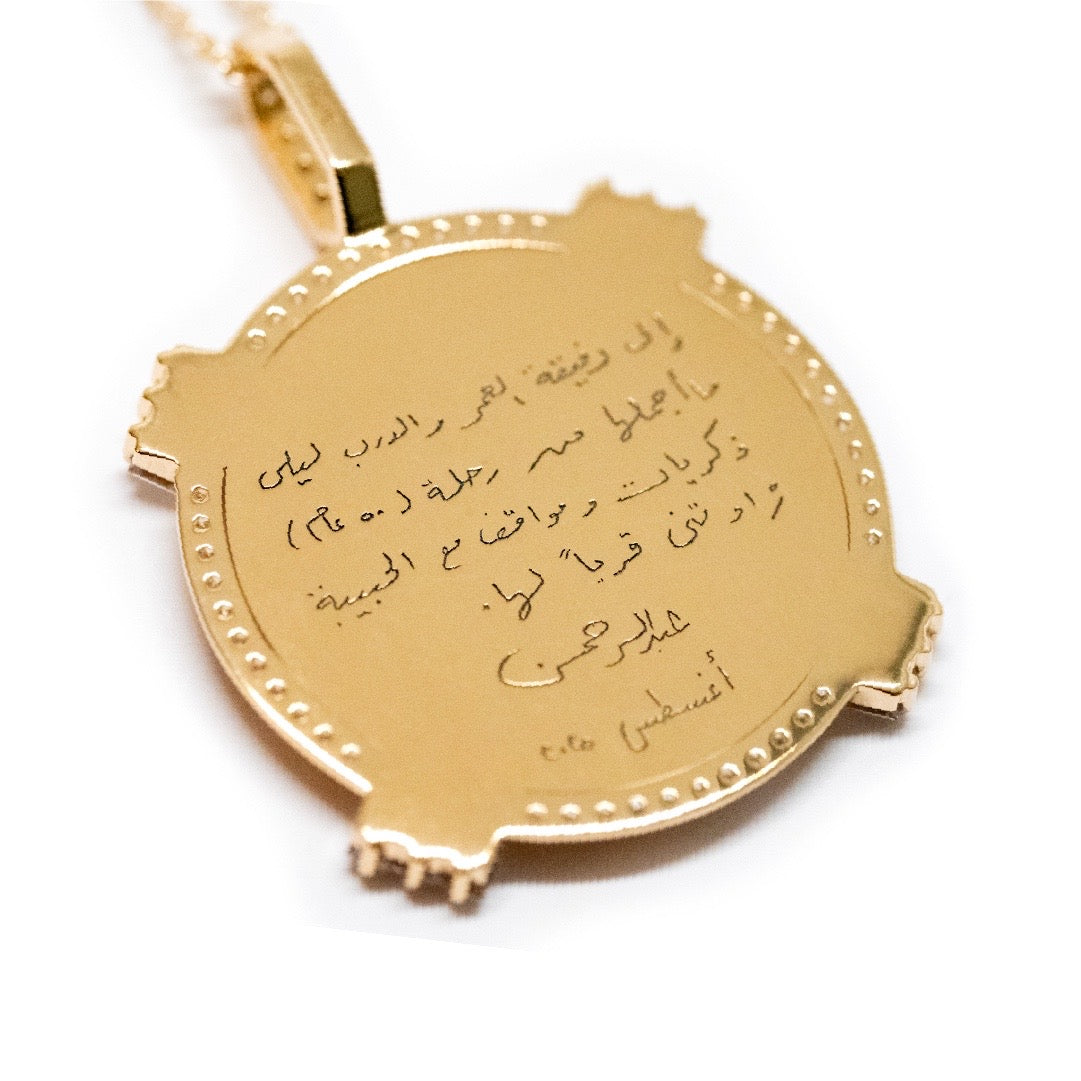 إلى رفيقة العمر والدرب ليلى
ما أجملها من رحلة (٥٠ عام)
ذكريات ومواقف مع الحبيبة
زادتني قرباً لها.
عبدالرحمن
أغسطس ٢٠٢٥